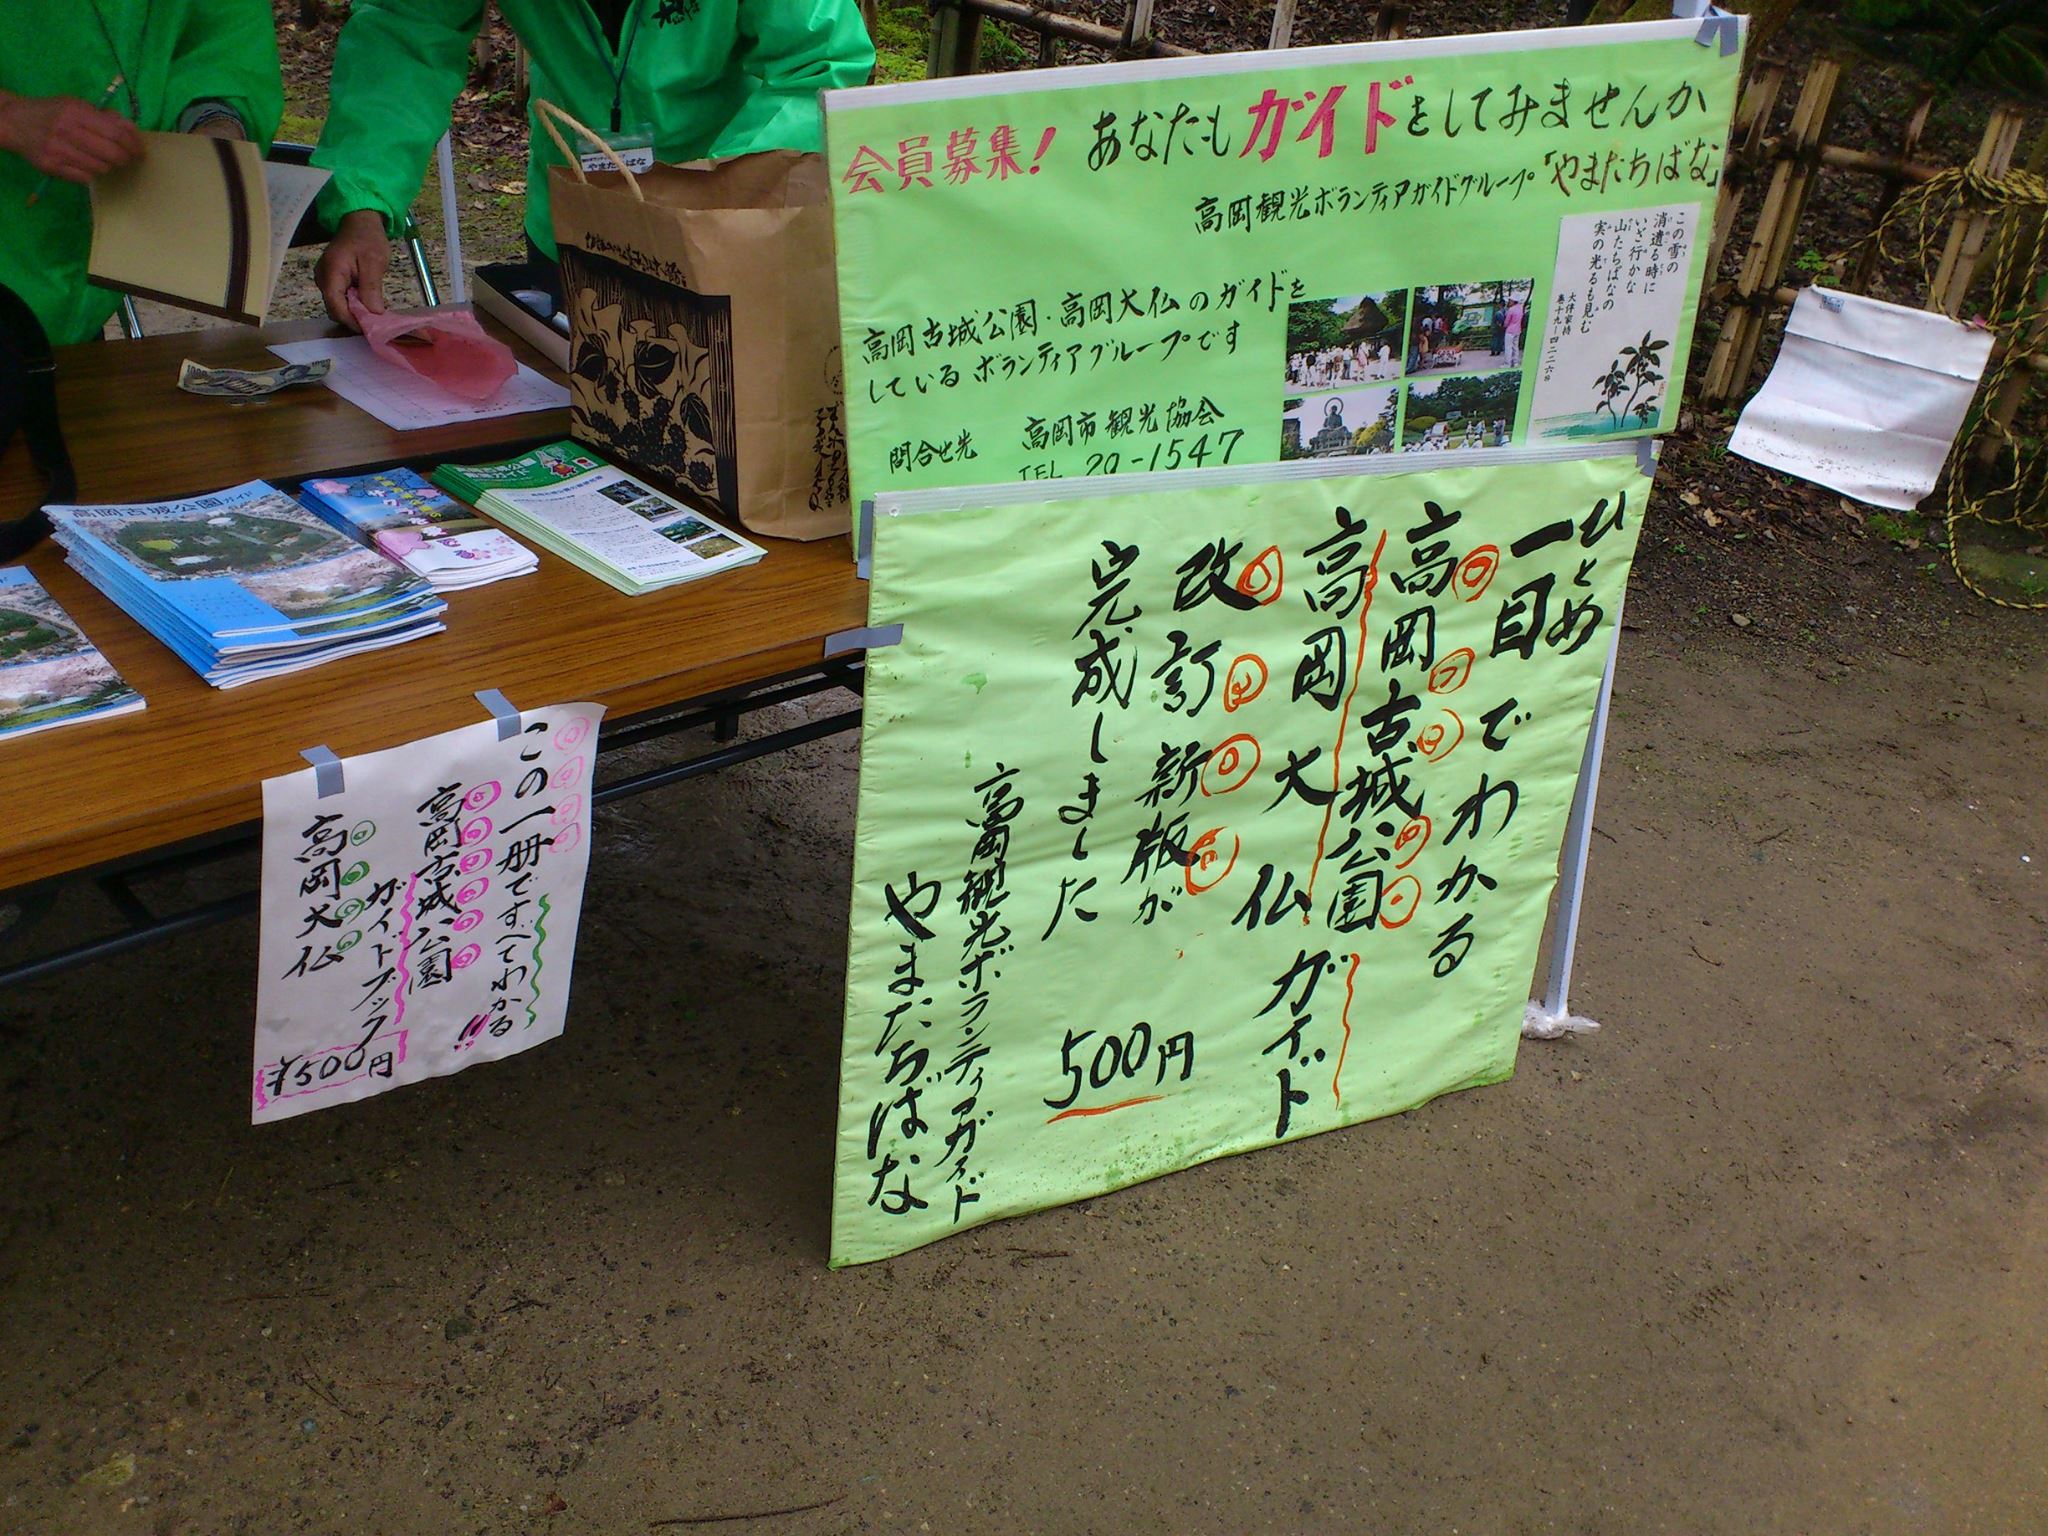 会員募集！
あなたもガイドをしてみませんか
高岡観光ボランティアガイドグループ「やまたちばな」
高岡古城公園・高岡大仏のガイドを
しているボランティアグループです
問合せ先
高岡市観光協会
TEL 20-1547
この雪の
消遺る時に
いざ行かな
山たちばなの
実の光るも見む
大伴家持
巻十九―四二二六
ひとめ
一目でわかる
高岡古城公園
高岡大仏ガイド
改訂新版が
完成しました
500円
高岡観光ボランティアガイド
やまたちばな
この一冊ですべてわかる!!
高岡古城公園
ガイドブック
高岡大仏
¥500円
高岡古城公園ガイド
やまたちばな
1000